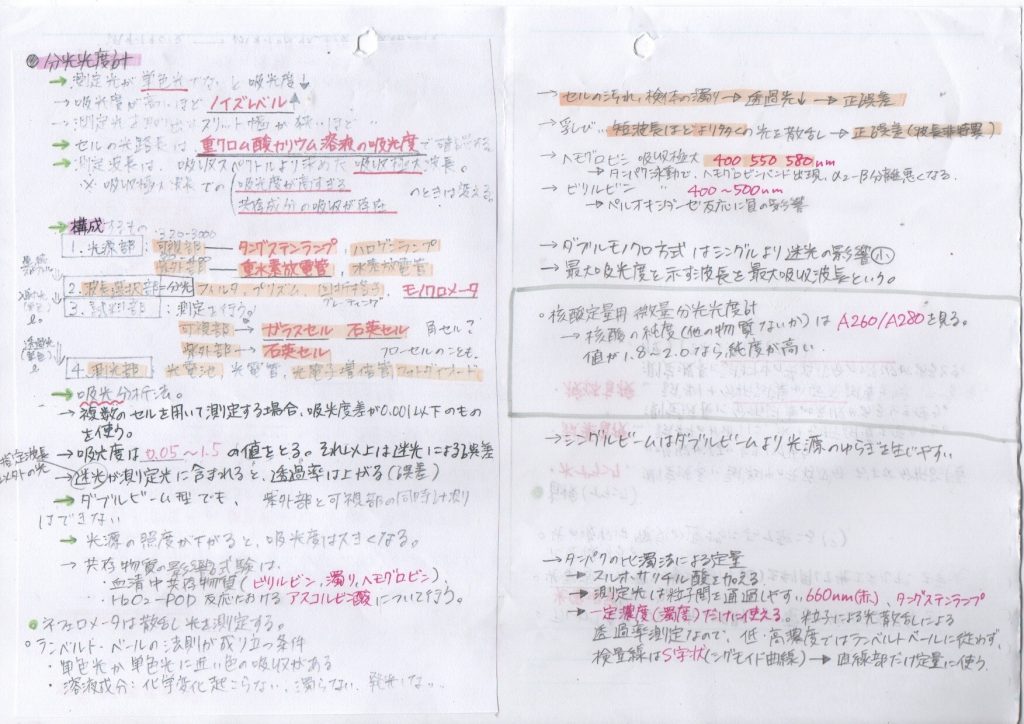 分光光度計
→ 測定光が単色光でないと吸光度↓
→ 吸光度が高いほどノイズレベル↑
→ 測定光 スリット幅が狭いほど
→ セルの光路長は重クロム酸カリウム溶液の吸光度で確認する
→ 測定波長は、吸収スペクトルより求めた吸収極大波長。
※ 吸収極大波長での 吸光度が高すぎる のときは変える。
共存成分の吸収が存在
→ 構成するもの
320-3000
1. 光源部: 可視部 — タングステンランプ, ハロゲンランプ
紫外部 — 重水素放電管, 水素放電管
2. 波長選択部=分光 フィルタ, プリズム, 回折格子, モノクロメータ
グレーティング
3. 試料部: 測定を行う。
可視部→ ガラスセル 石英セル 角セルで
紫外部→ 石英セル フローセルのことも。
4. 測光部: 光電池, 光電管, 光電子増倍管, フォトダイオード
入射光
透過光
→ 吸光分析法。
→ 複数のセルを用いて測定する場合、吸光度差が0.001以下のもの
を使う。
→ 吸光度は0.05~1.5の値をとる。それ以上は迷光による誤差
指定波長
以外の光
→ 迷光が測定光に含まれると、透過率は上がる(誤差)
→ ダブルビーム型でも 紫外部と可視部の同時計測
はできない
→ 光源の照度が下がると、吸光度は大きくなる。
→ 共存物質の影響試験は、
・血清中共存物質(ビリルビン, 濁り, ヘモグロビン)、
・H2O2-POD反応における アスコルビン酸について行う。
ネフェロメータは散乱光を測定する。
○ランベルト・ベールの法則が成り立つ条件
・単色光か単色光に近い色の吸収がある
・溶液成分: 化学変化起こらない, 濁らない,
→ セルの汚れ, 検体の濁り → 透過光↓ → 正誤差
→ 乳び… 短波長ほどより多くの光を散乱し → 正誤差(波長非依存)
→ ヘモグロビン 吸収極大 400 550 580nm
→ タンパク泳動で、ヘモグロビンバンド出現、α2-β分離悪くなる。
→ ビリルビン 〃 400~500nm
→ ペルオキシダーゼ反応に負の影響
→ ダブルモノクロ方式はシングルより迷光の影響小
→ 最大吸光度を示す波長を最大吸収波長という。
○核酸定量用 微量分光光度計
→ 核酸の純度(他の物質ないか)はA260/A280を見る。
値が1.8~2.0なら, 純度が高い
→ シングルビームはダブルビームより光源のゆらぎを生じやすい
→ タンパクの比濁法による定量
→ スルホサリチル酸を加える
→ 測定光は粒子間を通過しやすい660nm(赤)、タングステンランプ
→ 一定濃度(濁度)だけに使える。粒子による光散乱による
透過率測定なので、低・高濃度ではランベルトベールに従わず、
検量線はS字状(シグモイド曲線) → 直線部だけ定量に使う.